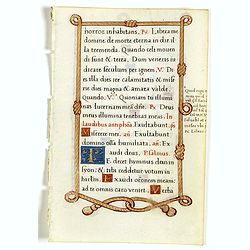 horror inhabitans, ℟. Libera me
domine de morte eterna in die il
la tremenda. Quando celi mouen
di sunt & terra. Dum veneris iu
dicare seculum per ignem. ℣. Di
es illa dies ire calamitatis & mise
rie dies magna & amara valde.
Quando. ℣. Quoniam tu illumi
nas lucernam meam dñe. ℟. Deus
meus illumina tenebras meas. In
laudibus antiphõa Exultabunt añ
Miserere mei. añ Exultabunt
domino ossa humiliata. añ Ex
audi deus, Psalmus.
TE decet hymnus deus in
syon: & tibi reddetur votum in
hierlm. Exaudi orionem meam:
ad te omnis caro veniet. Verba